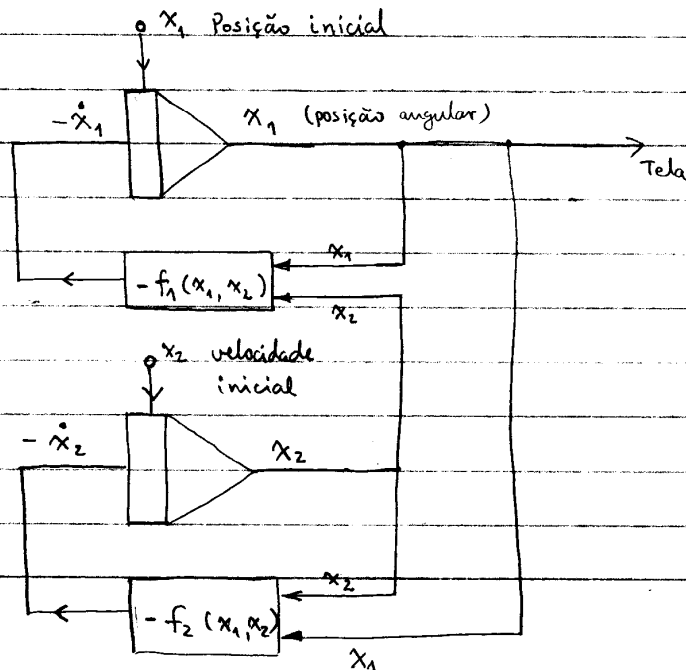 x₁ Posição inicial
-ẋ₁
x₁ (posição angular)
Tela
x₁
-f₁(x₁, x₂)
x₂
x₂ velocidade
inicial
-ẋ₂
x₂
x₂
-f₂(x₁,x₂)
x₁